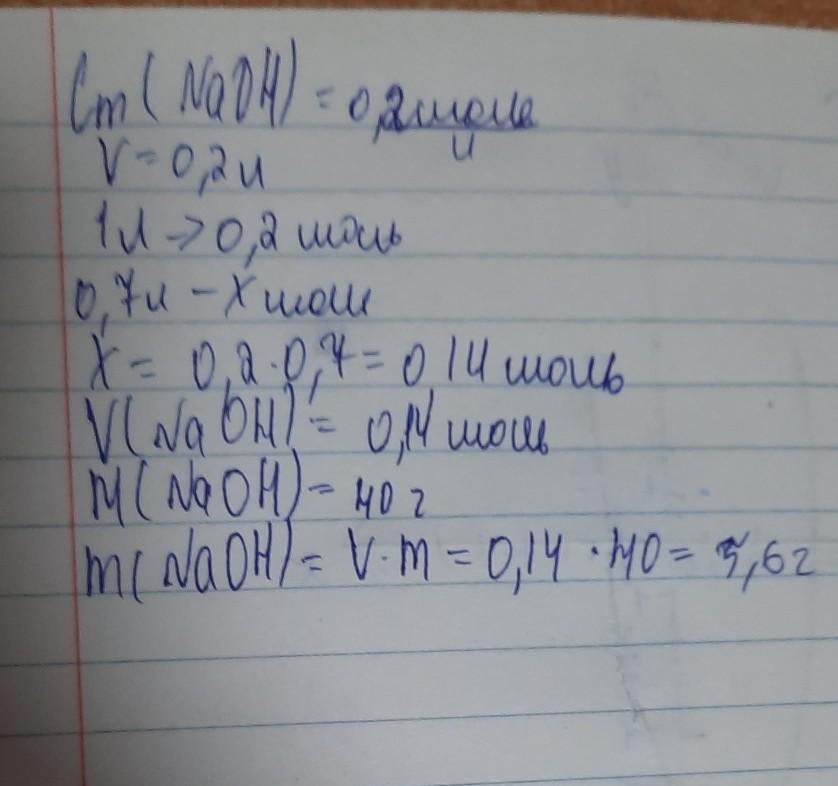 Cm(NaOH) = 0,2 моль/л
V = 0,2 л
1л -> 0,2 моль
0,7л - X моль
X = 0,2 · 0,7 = 0,14 моль
V(NaOH) = 0,14 моль
M(NaOH) = 40 г
m(NaOH) = V · m = 0,14 · 40 = 5,6 г